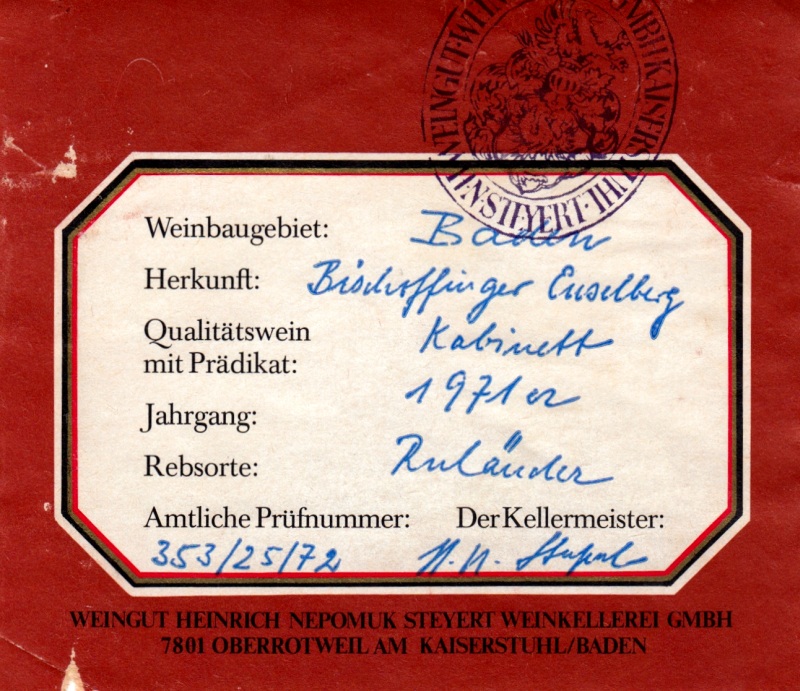 WEINGUT
GMBH KAISERS
HN·STEYERT·IH
Weinbaugebiet: Baden
Herkunft: Bischoffinger Enselberg
Qualitätswein
mit Prädikat: Kabinett
Jahrgang: 1971er
Rebsorte: Ruländer
Amtliche Prüfnummer: Der Kellermeister:
353/25/72 H. N.
WEINGUT HEINRICH NEPOMUK STEYERT WEINKELLEREI GMBH
7801 OBERROTWEIL AM KAISERSTUHL/BADEN